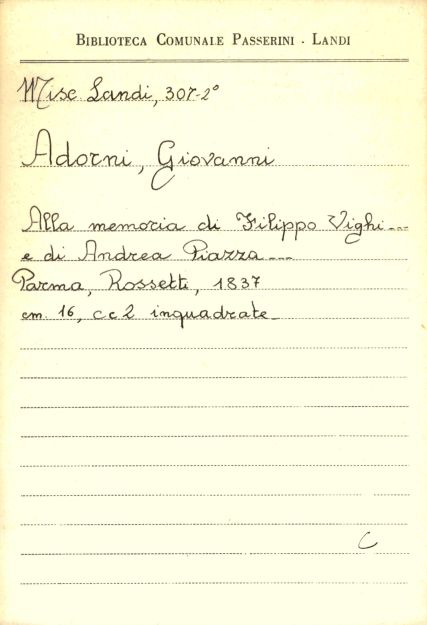 BIBLIOTECA COMUNALE PASSERINI - LANDI
Misc. Landi, 307-2°
Adorni, Giovanni
Alla memoria di Filippo Vighi ...
e di Andrea Piazza ...
Parma, Rossetti, 1837
cm. 16, cc 2 inquadrate
C